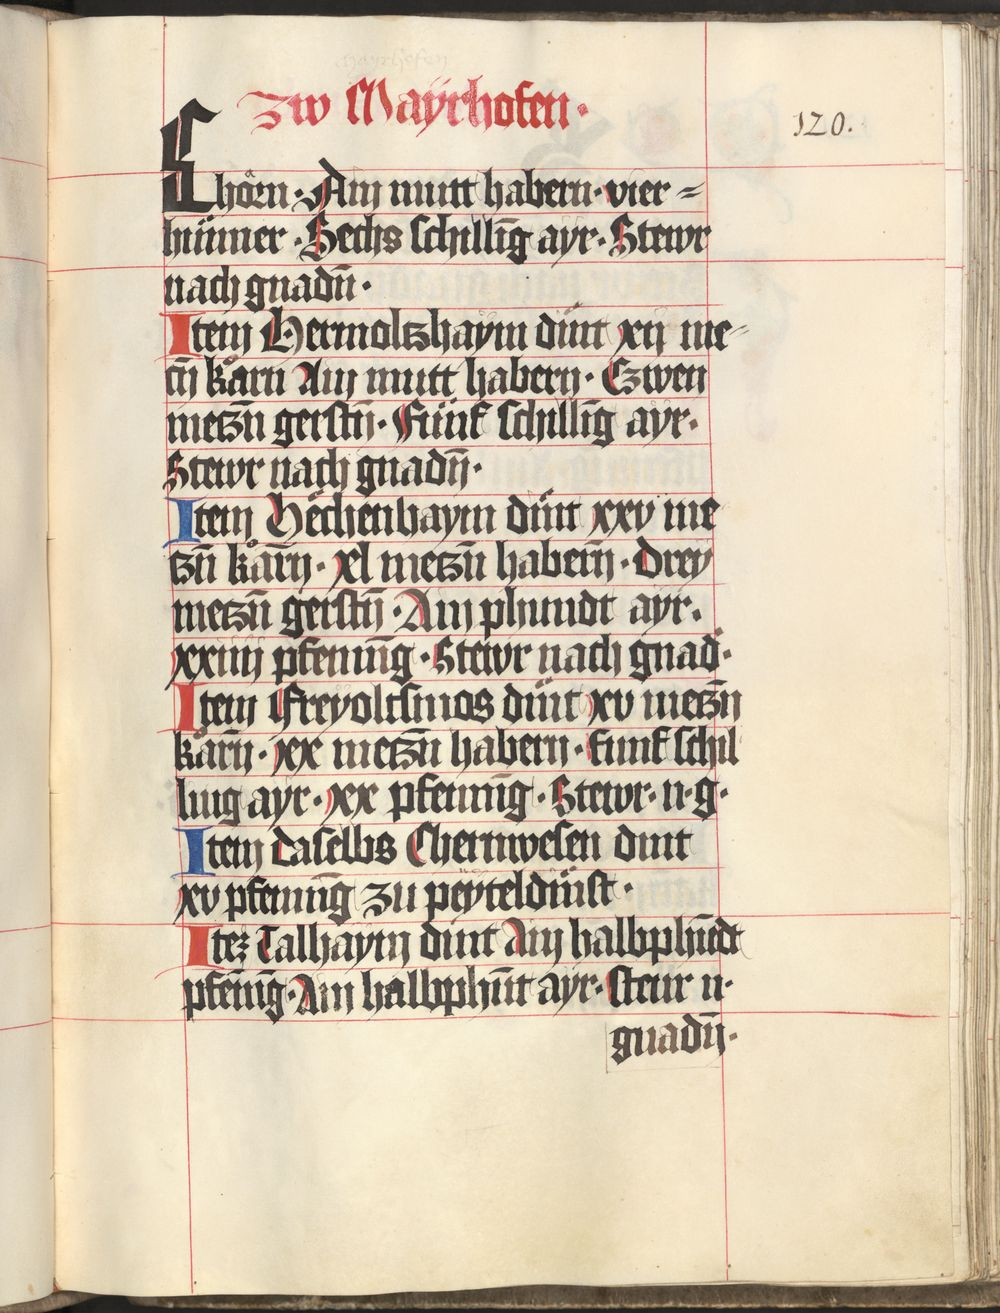 mayrhofen
zw Maÿrhofen·
120.
Chorn· Ain mutt habern· vier=
hünner· Sechs schillinḡ ayr· Stewr
nach gnadn̄·
Item Hermoltzhaym dint xij me-
cn̄ karn Ain mutt habern· Czwen
metzn̄ gerstn̄· Fünf schillinḡ ayr·
Stewr nach gnadn̄·
Item Hechenhaym dint xxv me
tzn̄ karn̄· xl metzn̄ habern̄· drey
metzn̄ gerstn̄· Ain phundt ayr·
xxiiij pfenninḡ· Stewr nach gnad̄·
Item Freyoltsmos dint xv metzn̄
karn̄· xx metzn̄ habern· funf schil
ling ayr· xx pfenninḡ· Stewr· n· g·
Item daselbs Chernwesen dint
xv pfenninḡ zu peyteldinst·
Itez Talhaym dint Ain halbphūdt
pfeninḡ· Ain halbphūt ayr· steur n·
gnadn̄·